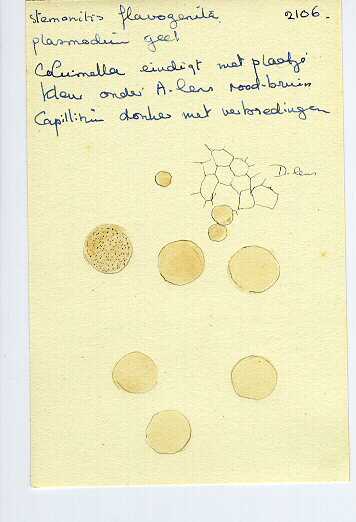 stemonitis flavogenita 2106.
plasmodium geel
Columella eindigt met plaatje
kleur onder A-lens rood-bruin
Capillitium donker met verbredingen
D-lens